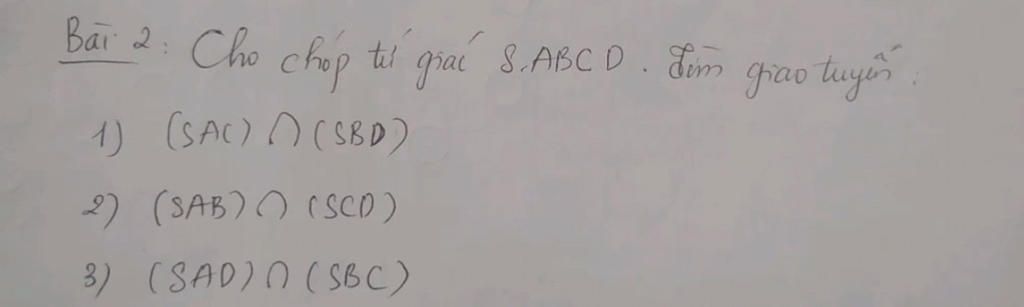 Bài 2: Cho chóp tứ giác S.ABCD. Tìm giao tuyến:
1) (SAC) ∩ (SBD)
2) (SAB) ∩ (SCD)
3) (SAD) ∩ (SBC)